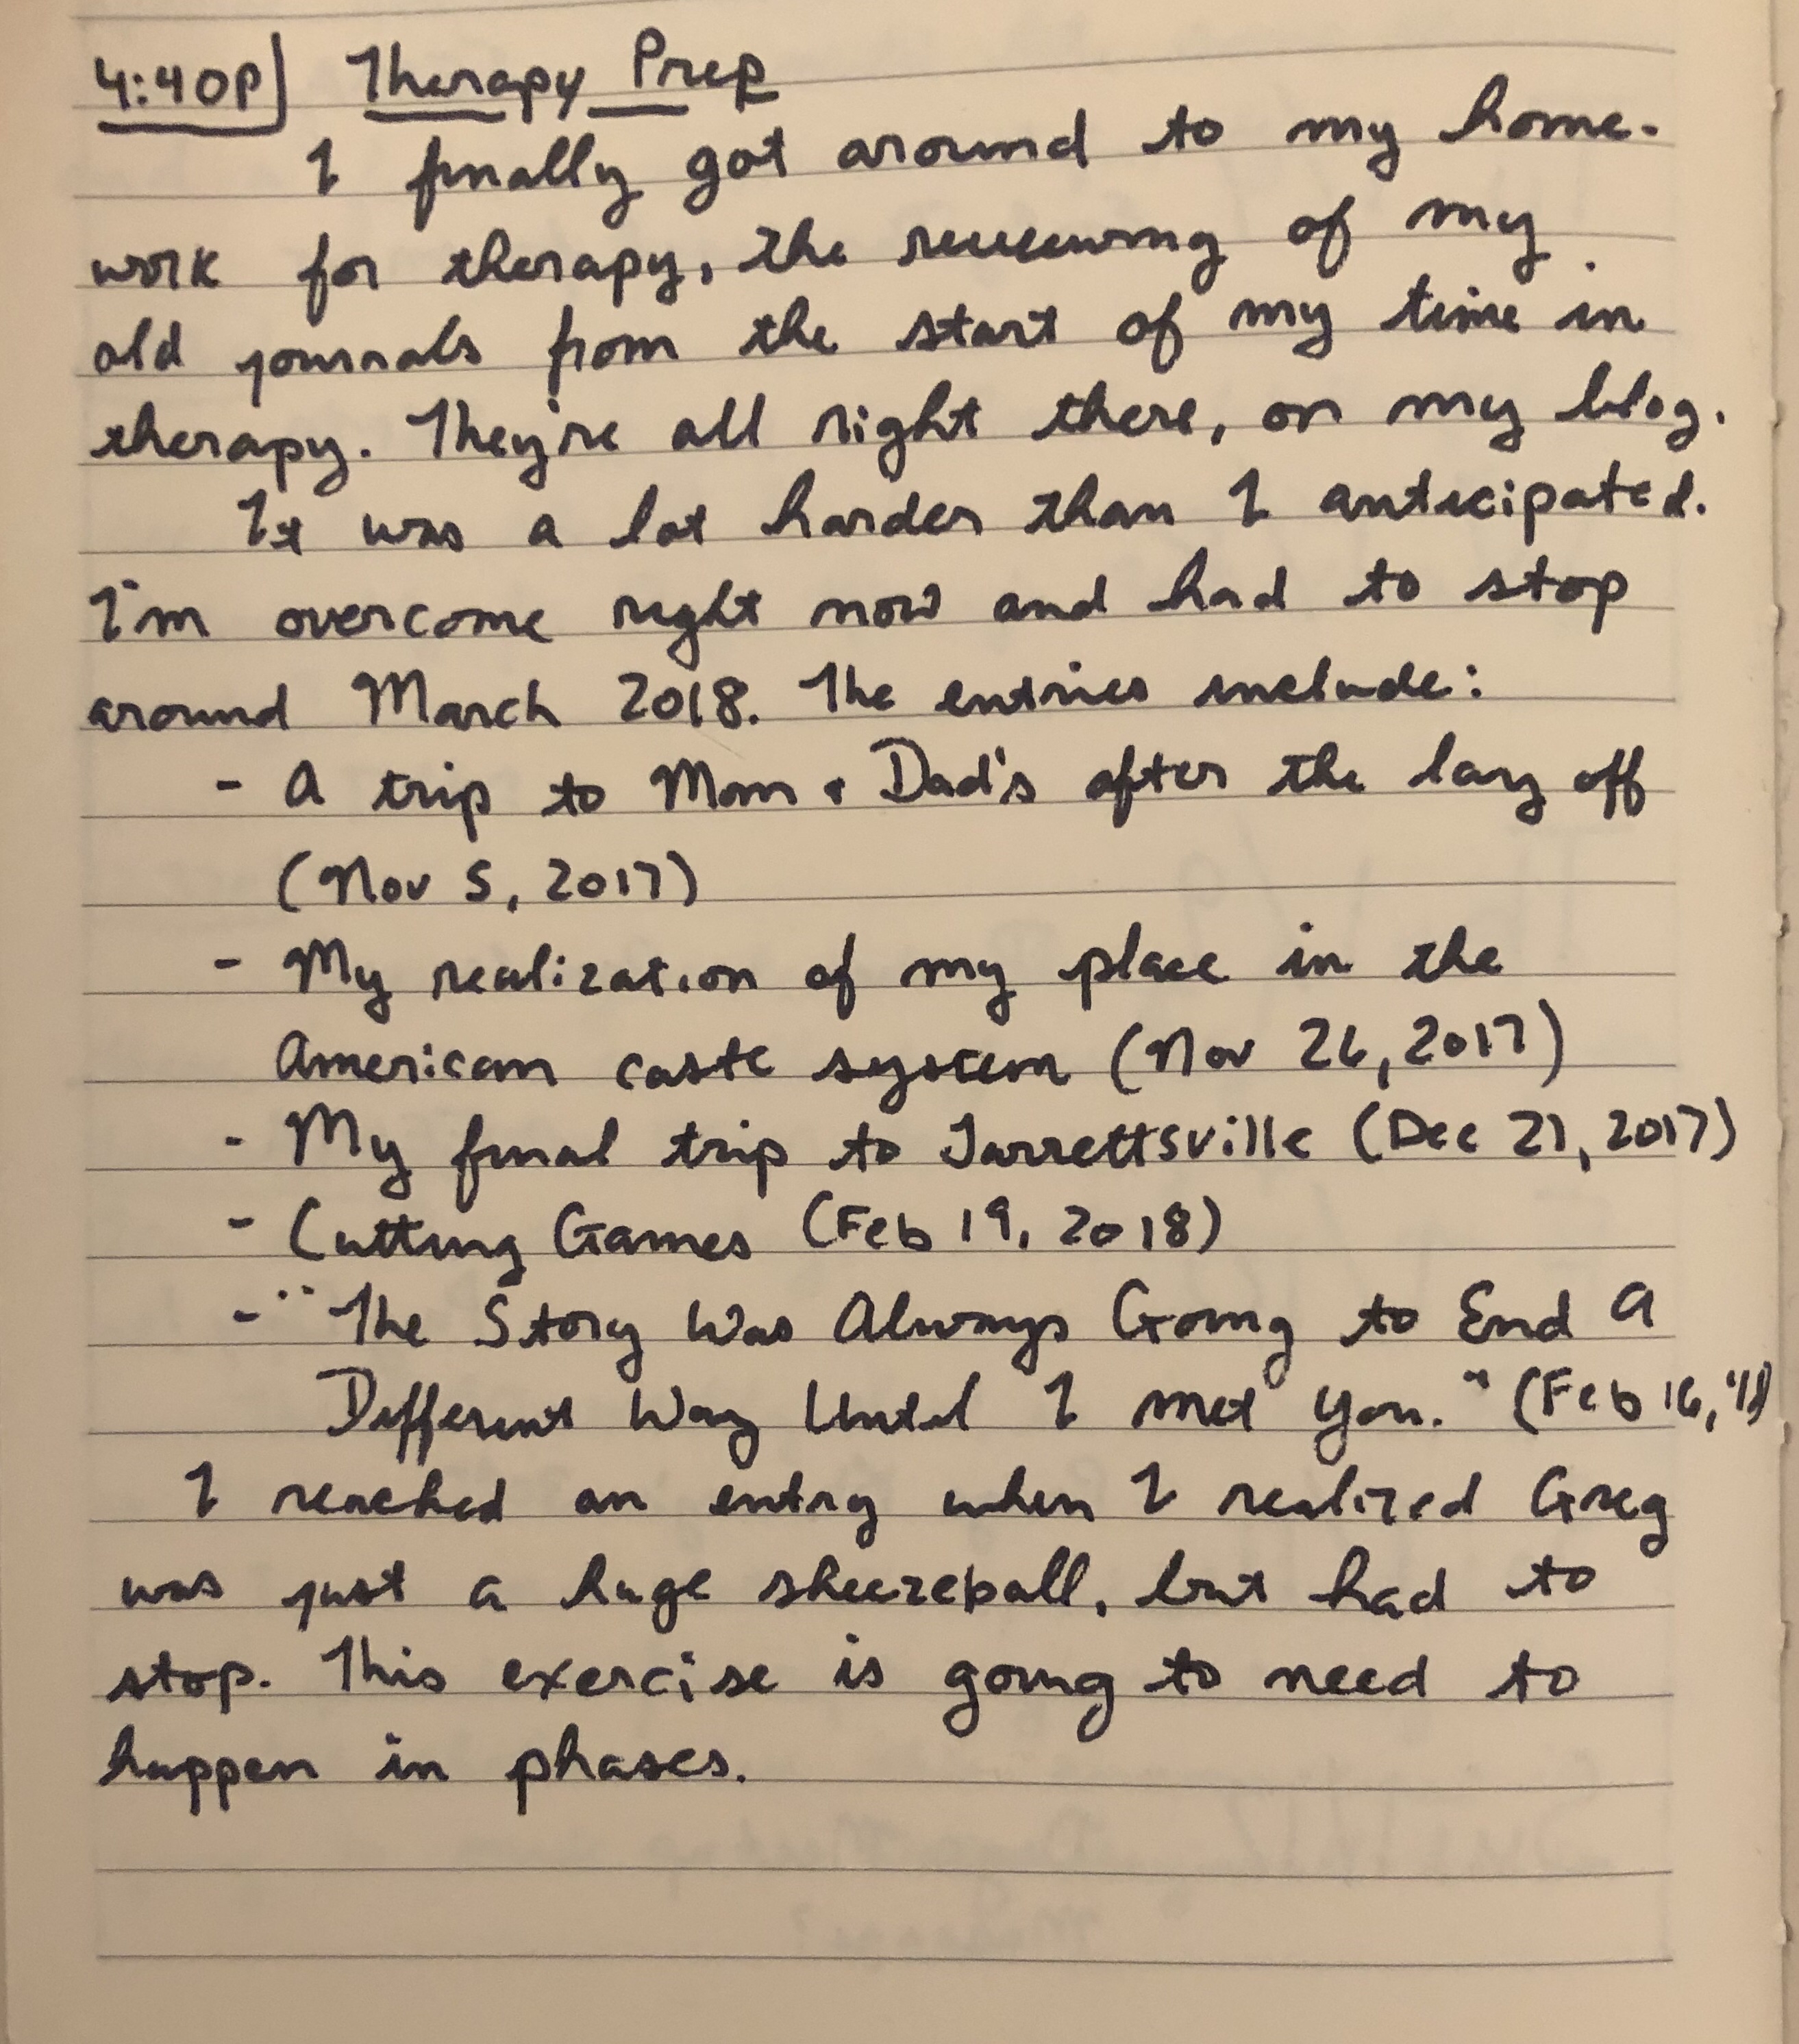 4:40P Therapy Prep
I finally got around to my home-
work for therapy, the reviewing of my
old journals from the start of my time in
therapy. They're all right there, on my blog.
It was a lot harder than I anticipated.
I'm overcome right now and had to stop
around March 2018. The entries include:
- A trip to Mom & Dad's after the lay off
(Nov 5, 2017)
- My realization of my place in the
American caste system (Nov 26, 2017)
- My final trip to Jarrettsville (Dec 21, 2017)
- Cutting Games (Feb 19, 2018)
- "The Story Was Always Going to End A
Different Way Until I met you." (Feb 16, '18)
I reached an entry when I realized Greg
was just a huge sheezeball, but had to
stop. This exercise is going to need to
happen in phases.